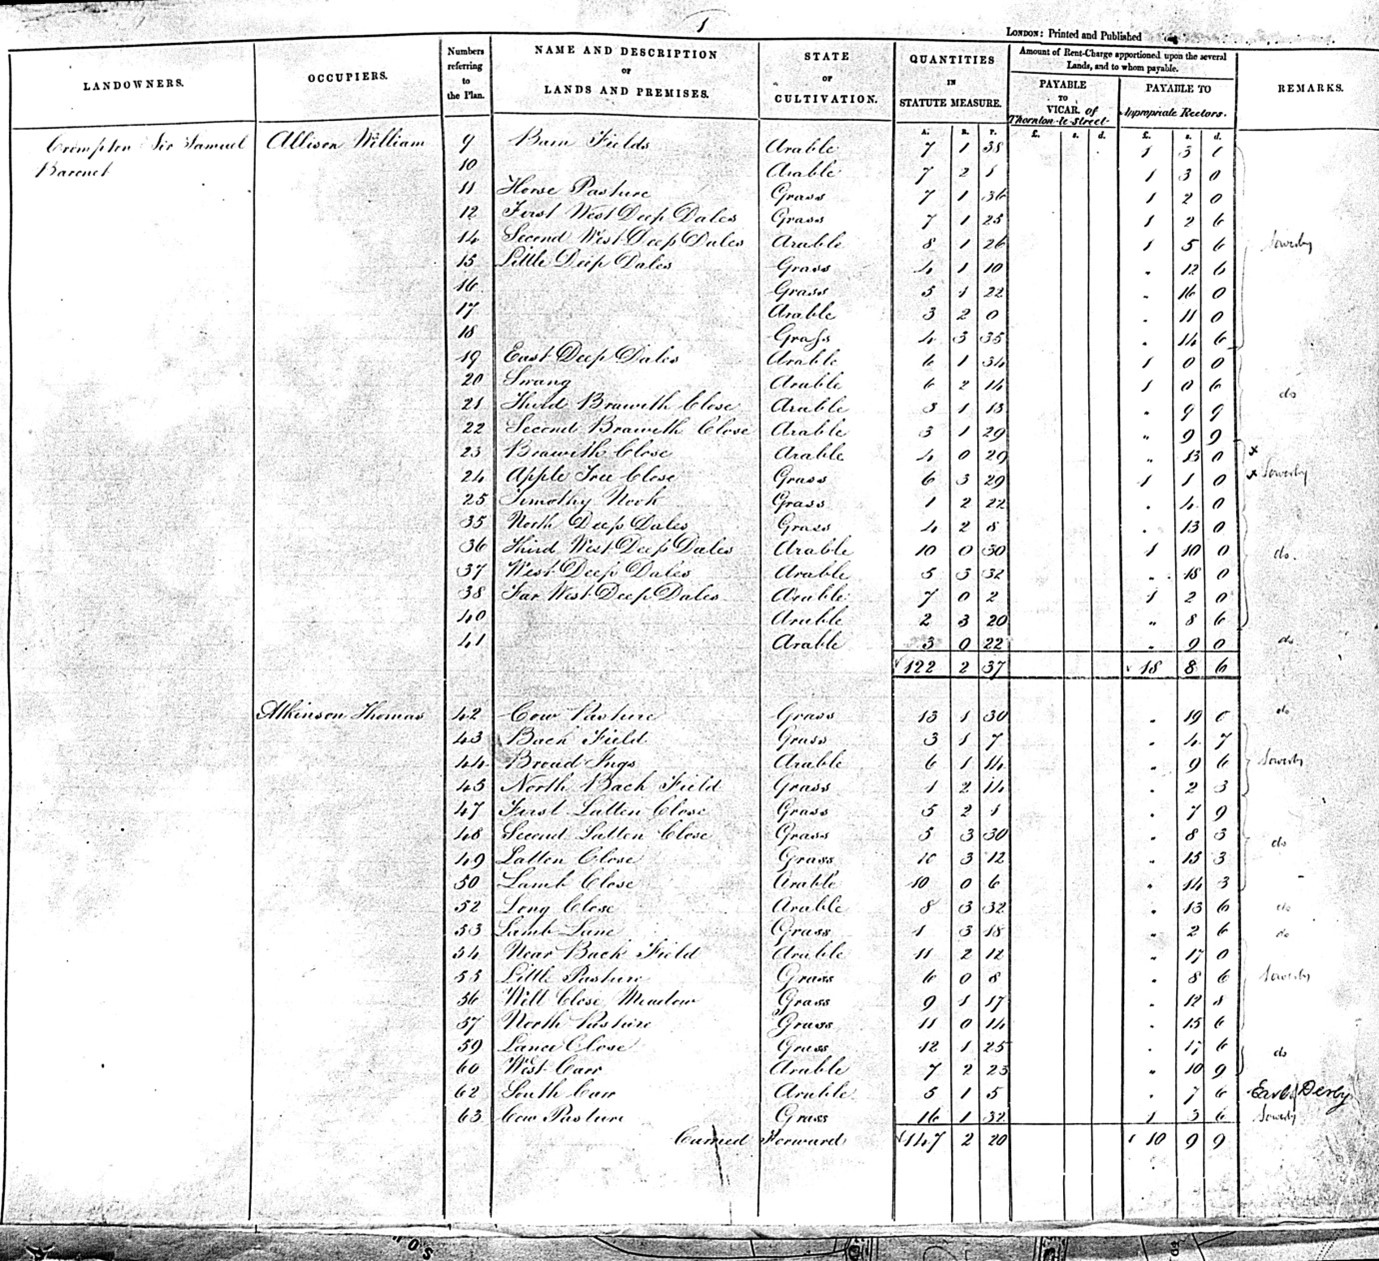 1
LONDON: Printed and Published
LANDOWNERS.
OCCUPIERS.
Numbers referring to the Plan.
NAME AND DESCRIPTION OF LANDS AND PREMISES.
STATE OF CULTIVATION.
QUANTITIES IN STATUTE MEASURE.
Amount of Rent-Charge apportioned upon the several Lands, and to whom payable.
PAYABLE TO VICAR. of Thornton-le-Street
PAYABLE TO Appropriate Rectors.
REMARKS.
A. R. P. £. s. d. £. s. d.
Crompton Sir Samuel Allison William 9 Barn Fields Arable 7 1 38 1 3
Baronet 10 Arable 7 2 1 1 3 0
11 Horse Pasture Grass 7 1 36 1 2 0
12 First West Deep Dales Grass 7 1 25 1 2 6
14 Second West Deep Dales Arable 8 1 26 1 5 6 Sowerby
15 Little Deep Dales Grass 4 1 10 " 12 6
16 Grass 5 1 22 " 16 0
17 Arable 3 2 0 " 11 0
18 Grass 4 3 35 " 14 6
19 East Deep Dales Arable 6 1 34 1 0 0
20 Swang Arable 6 2 14 1 0 6 do
21 Third Braweth Close Arable 3 1 13 " 9 9
22 Second Braweth Close Arable 3 1 29 " 9 9
23 Braweth Close Arable 4 0 29 " 13 0 x
24 Apple Tree Close Grass 6 3 29 1 1 0 x Sowerby
25 Timothy Nook Grass 1 2 22 " 4 0
35 North Deep Dales Grass 4 2 8 " 13 0
36 Third West Deep Dales Arable 10 0 30 1 10 0 do.
37 West Deep Dales Arable 5 3 32 " 18 0
38 Far West Deep Dales Arable 7 0 2 1 2 0
40 Arable 2 3 20 " 8 6
41 Arable 3 0 22 " 9 0 do
122 2 37 18 8 6
Atkinson Thomas 42 Cow Pasture Grass 13 1 30 " 19 0 do
43 Back Field Grass 3 1 7 " 4 7
44 Broad Ings Arable 6 1 14 " 9 6 Sowerby
45 North Back Field Grass 1 2 14 " 2 3
47 First Latten Close Grass 5 2 1 " 7 9
48 Second Latten Close Grass 5 3 30 " 8 3 do
49 Latten Close Grass 10 3 12 " 15 3
50 Lamb Close Arable 10 0 6 " 14 3
52 Long Close Arable 8 3 32 " 13 6 do
53 Lamb Lane Grass 1 3 18 " 2 6 do
54 Near Back Field Arable 11 2 12 " 17 0
55 Little Pasture Grass 6 0 8 " 8 6 Sowerby
56 Well Close Meadow Grass 9 1 17 " 12 8
57 North Pasture Grass 11 0 14 " 15 6
59 Lance Close Grass 12 1 25 " 17 6 do
60 West Carr Arable 7 2 23 " 10 9
62 South Carr Arable 5 1 5 " 7 6 Earl Derby
63 Cow Pasture Grass 16 1 32 1 3 6 Sowerby
Carried Forward 147 2 20 £ 10 9 9